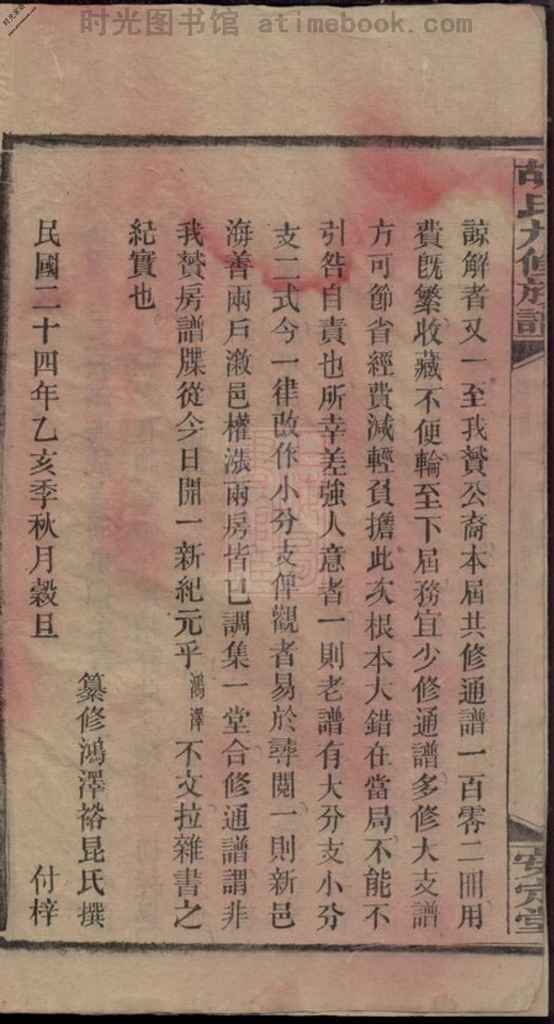 时光图书馆 atimebook.com
胡氏九修族譜
安定堂
諒解者又一至我贊公裔本屆共修通譜一百零二冊用
費旣繁收藏不便輪至下屆務宜少修通譜多修大支譜
方可節省經費減輕負擔此次根本大錯在當局不能不
引咎自責也所幸差強人意者一則老譜有大分支小分
支二式今一律改作小分支俾觀者易於尋閱一則新邑
海善兩戶漵邑權漲兩房皆已調集一堂合修通譜謂非
我贊房譜牒從今日開一新紀元乎鴻澤不文拉雜書之
紀實也
民國二十四年乙亥季秋月穀旦
纂修鴻澤裕昆氏撰
付梓